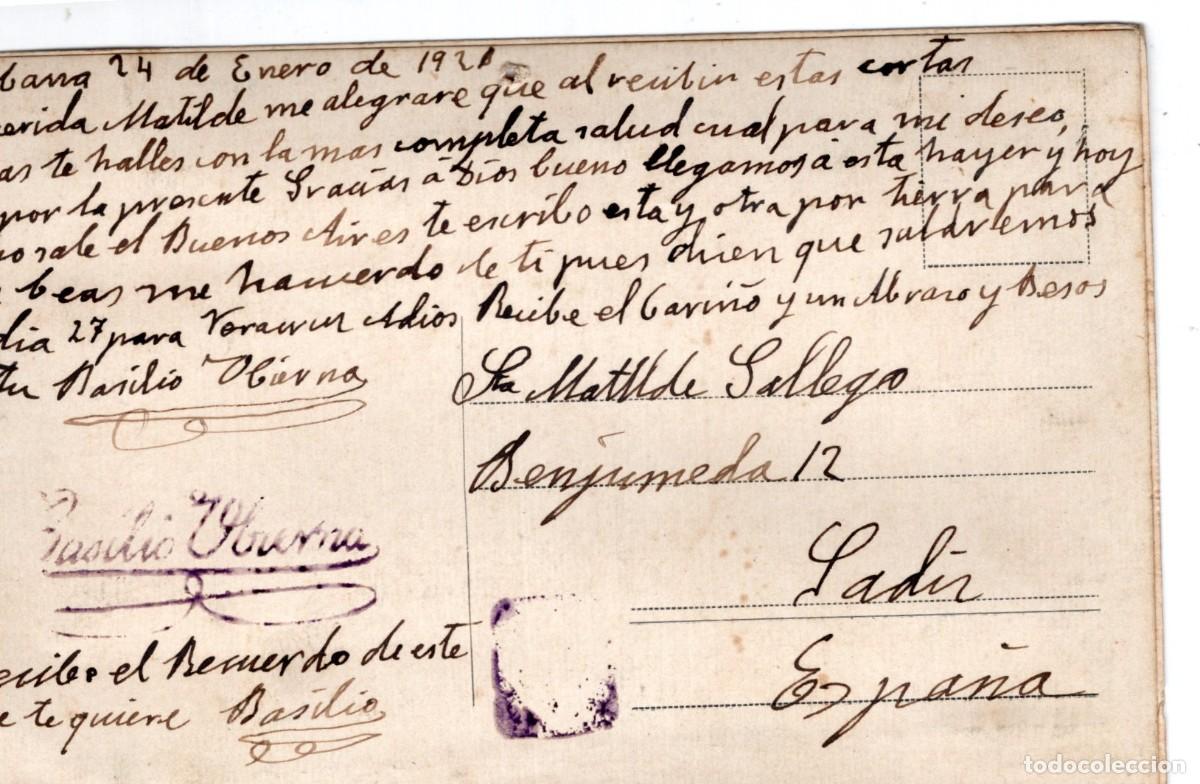 bana 24 de Enero de 1921
erida Matilde me alegrare que al recibir estas cortas
as te halles con la mas completa salud cual para mi deseo,
por la presente Gracias á Dios bueno llegamos á esta hayer y hoy
o sale el Buenos Aires te escribo esta y otra por tierra para
beas me hacuerdo de ti pues dicen que saldremos
dia 27 para Veracruz Adios Recibe el Cariño y un Abrazo y Besos
tu Basilio Obierna
Sta Matilde Gallego
Benjumeda 12
Cadiz
España
Basilio Obierna
ecibe el Recuerdo de este
e te quiere Basilio
todocoleccion